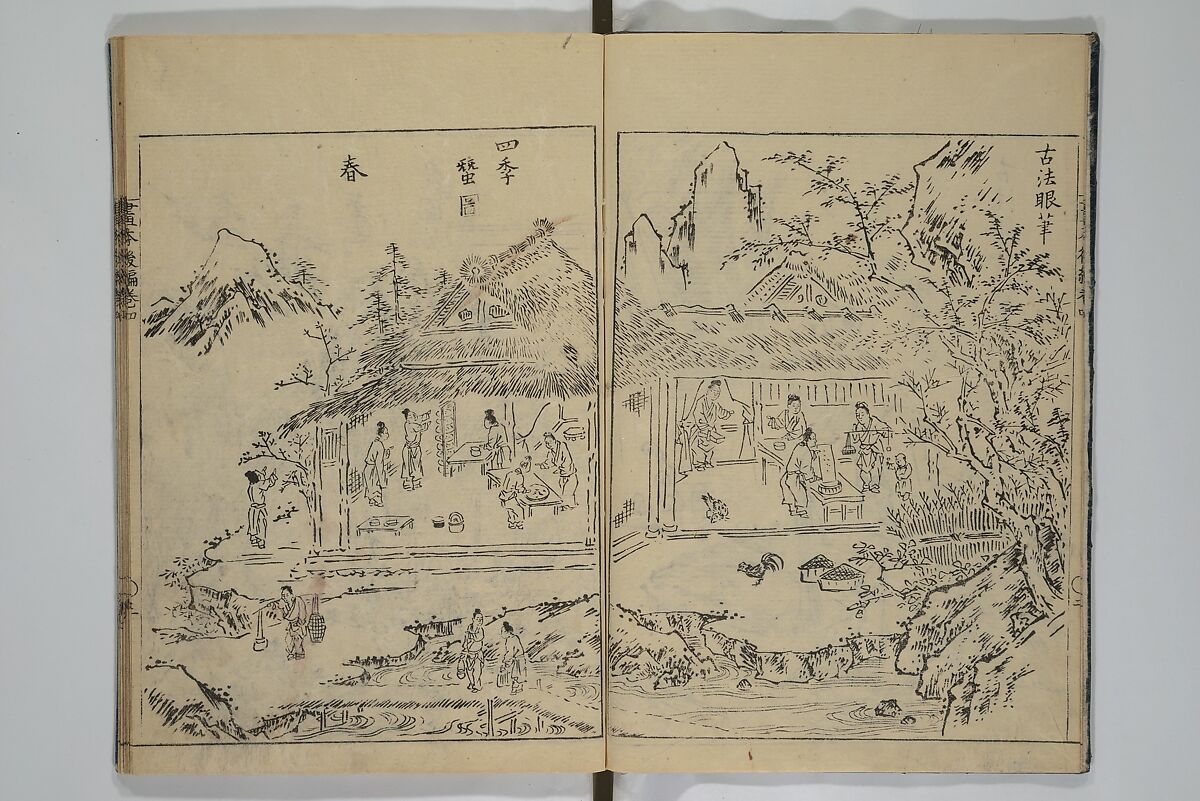 古法眼筆
四季
蠶圖
春
畫本後編卷四